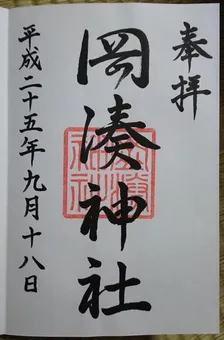 奉拝
岡湊神社
平成二十五年九月十八日